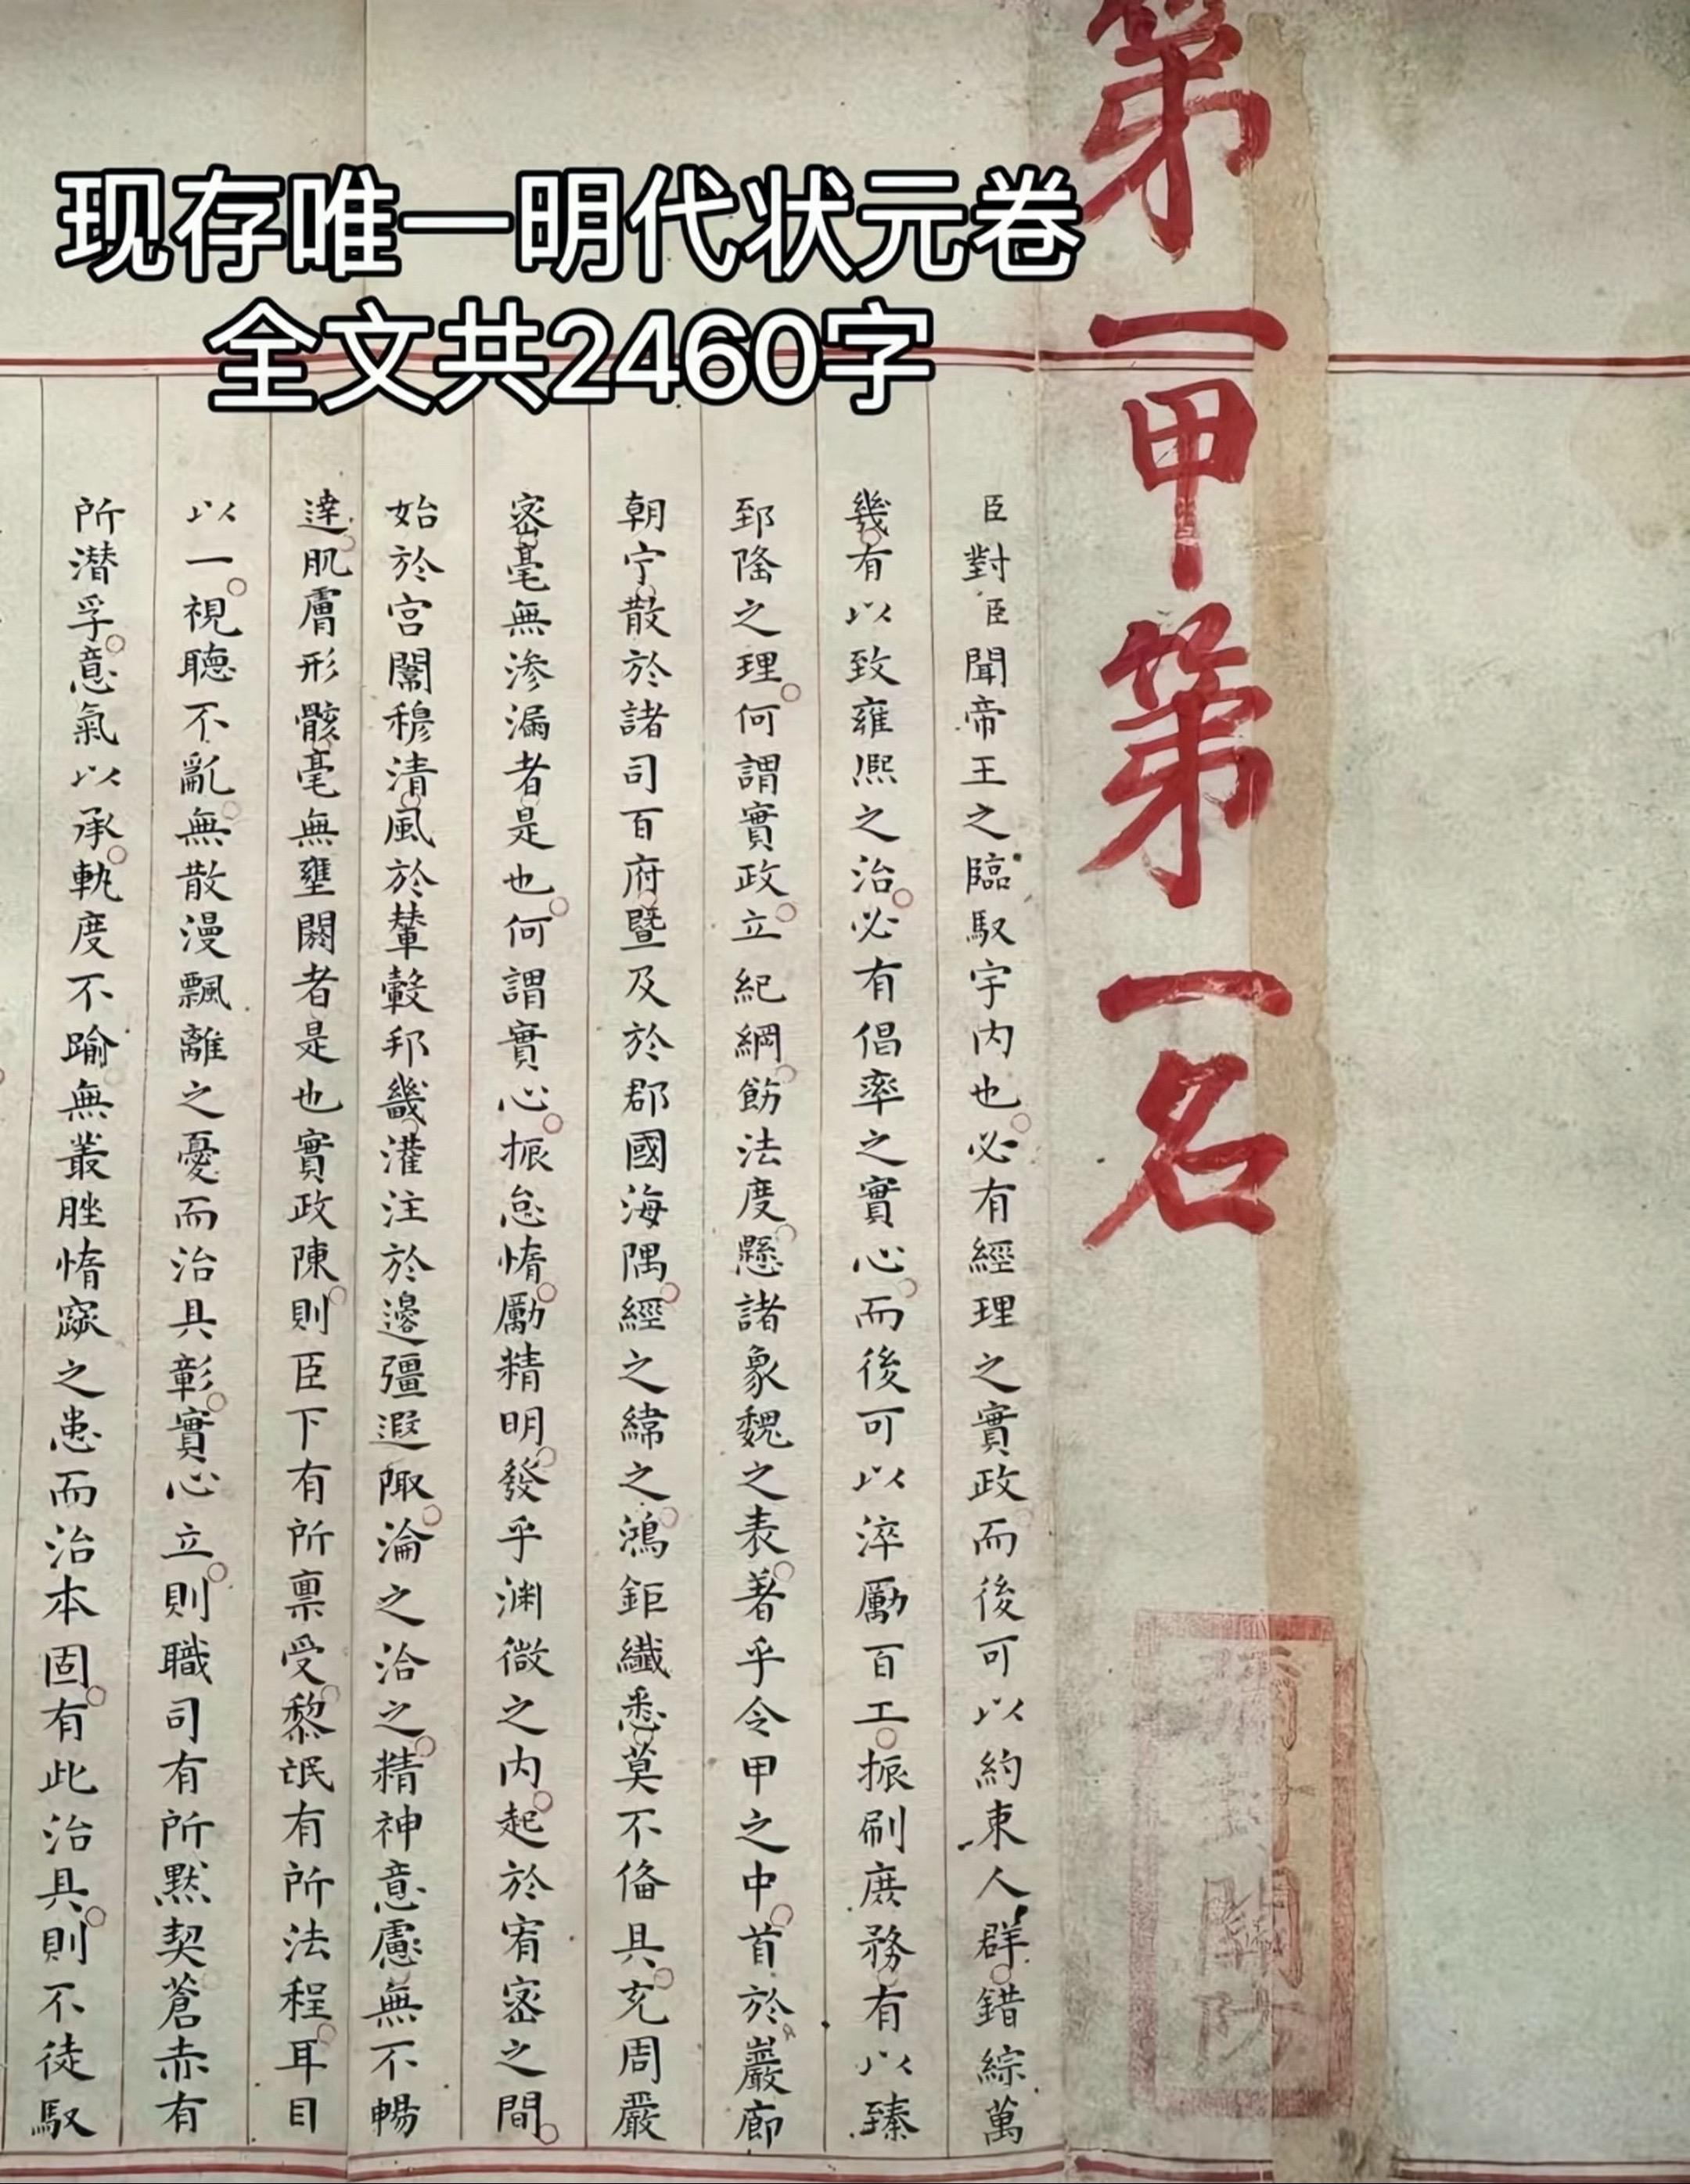 现存唯一明代状元卷
全文共2460字
第一甲第一名
臣對臣聞帝王之臨馭宇内也必有經理之實政而後可以約束人群錯綜萬
幾有以致雍熈之治必有倡率之實心而後可以淬勵百工振刷庻務有以臻
郅隆之理何謂實政立紀綱飭法度懸諸象魏之表著乎令甲之中首於巖廊
朝宁散於諸司百府暨及於郡國海隅經之緯之鴻鉅纖悉莫不俻具充周嚴
宻毫無渗漏者是也何謂實心振怠惰勵精明發乎渊微之内起於宥宻之間
始於宫闈穆清風於輦轂邦畿灌注於邊疆遐陬淪之洽之精神意慮無不暢
達肌膚形骸毫無壅閼者是也實政陳則臣下有所禀受黎氓有所法程耳目
以一視聴不亂無散漫飄離之憂而治具彰實心立則職司有所黙契蒼赤有
所潜孚意氣以承軌度不踰無叢脞惰窳之患而治本固有此治具則不徒馭